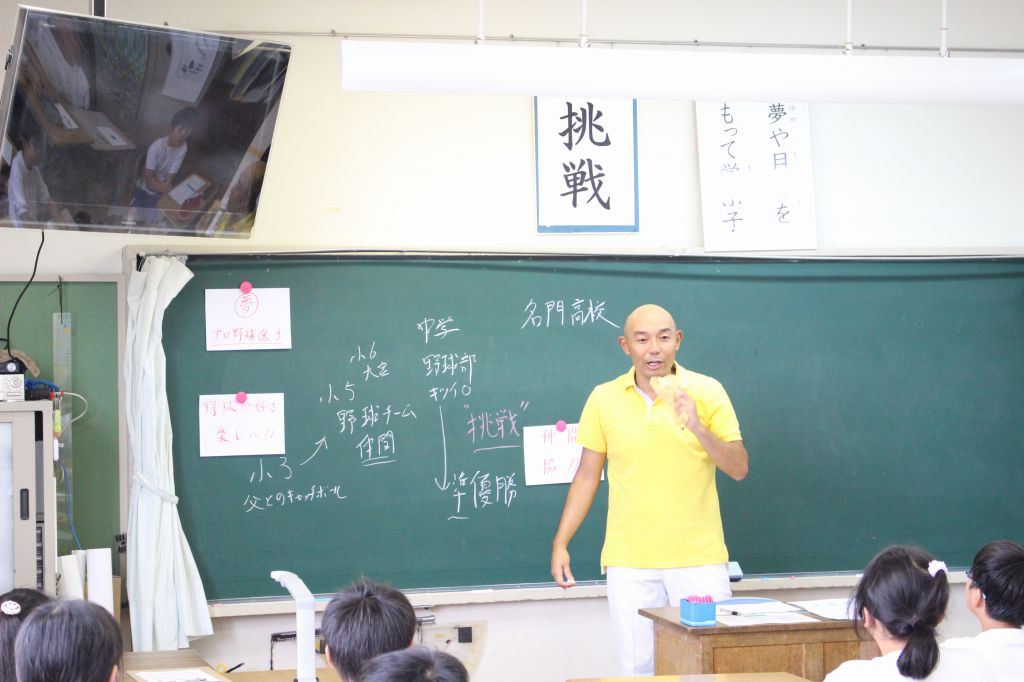 挑
戦
夢や日を
ゆめ
もって学 小子
夢
プロ野球選手
野球が好き
楽しい!!
小3
父とのキャッチボール
小5
野球チーム
仲間
小6
大会
中学
野球部
キツイ○
"挑戦"
準優勝
名門高校
仲間
協力